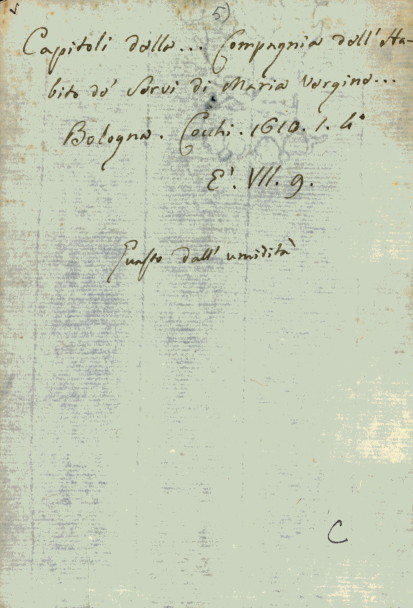 5)
Capitoli della... Compagnia dell'Ha-
bito de' Servi di Maria Vergine...
Bologna. Cochi. 1610. 1. 4°
E'. VII. 9.
Guasto dall' umidità
C